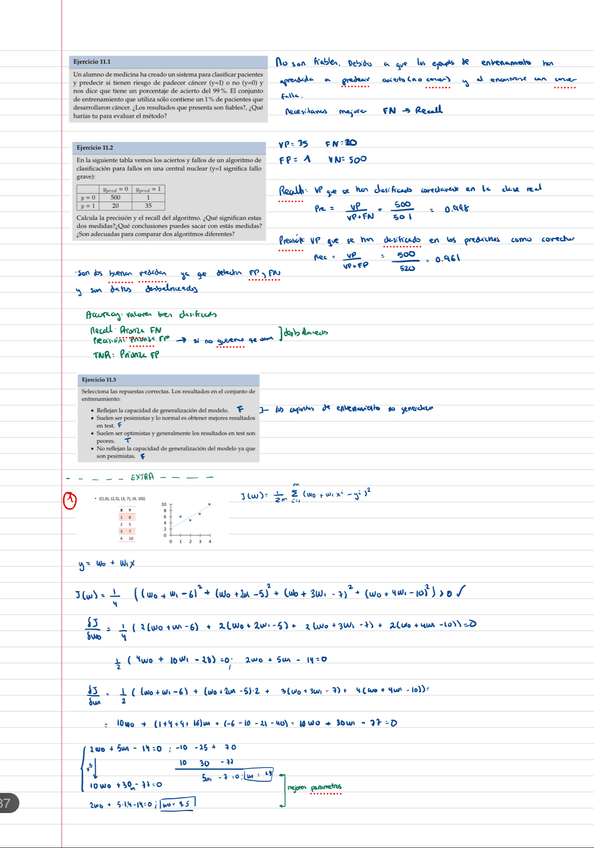 Ejercicio 11.1
Un alumno de medicina ha creado un sistema para clasificar pacientes
y predecir si tienen riesgo de padecer cáncer (y=1) o no (y=0) y
nos dice que tiene un porcentaje de acierto del 99 %. El conjunto
de entrenamiento que utiliza sólo contiene un 1 % de pacientes que
desarrollaron cáncer. ¿Los resultados que presenta son fiables?, ¿Qué
harías tu para evaluar el método?
No son fiables. Debido a que los ejemplos de entrenamiento han
aprendido a predecir acierto (no cancer) y al encontrarse un cancer
falla.
Necesitamos mejorar FN → Recall
Ejercicio 11.2
En la siguiente tabla vemos los aciertos y fallos de un algoritmo de
clasificación para fallos en una central nuclear (y=1 significa fallo
grave):
y_pred = 0 y_pred = 1
y = 0 500 1
y = 1 20 35
Calcula la precisión y el recall del algoritmo. ¿Qué significan estas
dos medidas?¿Qué conclusiones puedes sacar con estás medidas?
¿Son adecuadas para comparar dos algoritmos diferentes?
VP = 35 FN = 20
FP = 1 VN = 500
Recall: VP que se han clasificado correctamente en la clase real
Pre = VP / VP+FN = 500 / 501 = 0.998
Precisión: VP que se han clasificado en los predichos como correctos
Rec = VP / VP+FP = 500 / 520 = 0.961
· Son dos buenas medidas ya que detectan FP y FN
y son datos desbalanceados
Accuracy: valores bien clasificados
Recall: Prioriza FN
Precisión: Prioriza FP → si no queremos que
] desbalanceados
TNR: Prioriza FP
Ejercicio 11.3
Selecciona las repuestas correctas. Los resultados en el conjunto de
entrenamiento:
• Reflejan la capacidad de generalización del modelo. F
• Suelen ser pesimistas y lo normal es obtener mejores resultados
en test. F
• Suelen ser optimistas y generalmente los resultados en test son
peores. T
• No reflejan la capacidad de generalización del modelo ya que
son pesimistas. F
]- los conjuntos de entrenamiento no generalizan
- - - - - EXTRA - - - -
1
• {(1,6), (2,5), (3, 7), (4, 10)}
X Y
1 6
2 5
3 7
4 10
10
8
6
4
2
0
0 1 2 3 4
J(w) = 1/2m Σ (w0 + w1 x^i - y^i)^2
y = w0 + w1x
J(w) = 1/4 ((w0 + w1 - 6)^2 + (w0 + 2w1 - 5)^2 + (w0 + 3w1 - 7)^2 + (w0 + 4w1 - 10)^2) > 0 ✓
δJ/δw0 = 1/4 (2(w0 + w1 - 6) + 2(w0 + 2w1 - 5) + 2(w0 + 3w1 - 7) + 2(w0 + 4w1 - 10)) = 0
1/2 (4w0 + 10w1 - 28) = 0; 2w0 + 5w1 - 14 = 0
δJ/δw1 = 1/2 ((w0 + w1 - 6) + (w0 + 2w1 - 5)·2 + 3(w0 + 3w1 - 7) + 4(w0 + 4w1 - 10)) =
= 10w0 + (1+4+9+16)w1 + (-6 -10 -21 -40) = 10w0 + 30w1 - 77 = 0
2w0 + 5w1 - 14 = 0; -10 -25 + 70
10 30 -77
5w1 - 7 = 0;
10w0 + 30w1 - 77 = 0
2w0 + 5·1.4 - 14 = 0; w0 = 3.5
mejores parametros
37